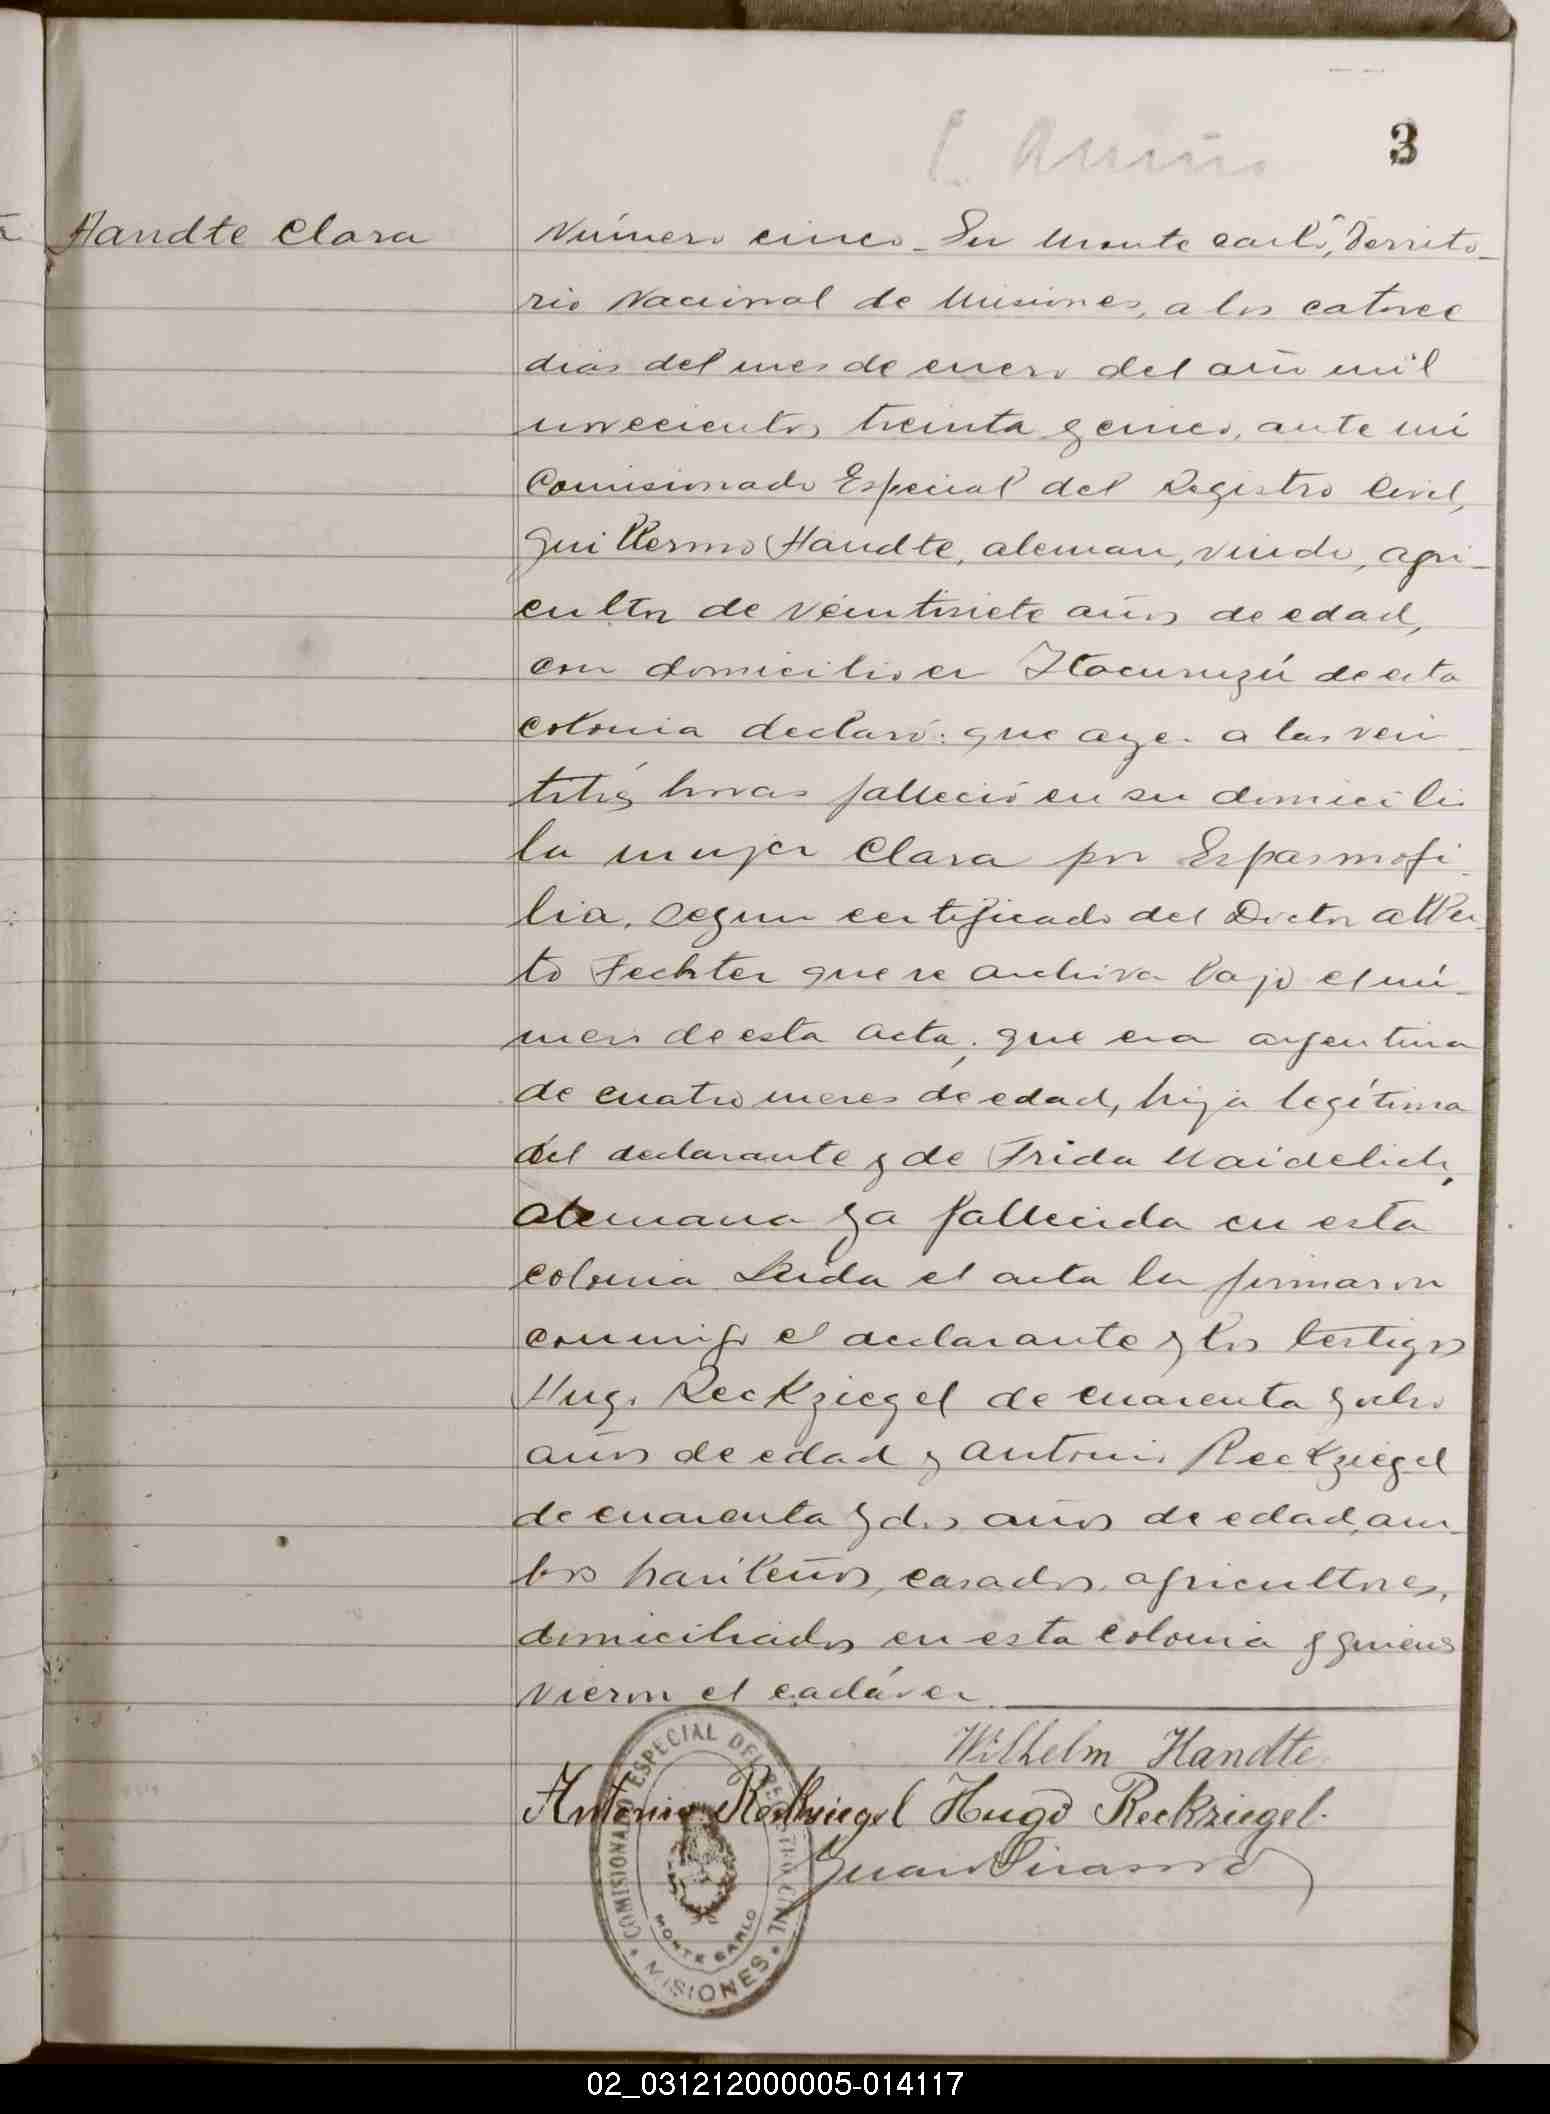 3
Handte Clara
Número cinco - En Monte Carlo, Territo-
rio Nacional de Misiones, a los catorce
dias del mes de enero del año mil
novecientos treinta y cinco, ante mi
Comisionado Especial del Registro Civil,
Guillermo Handte, aleman, viudo, agri-
cultor de veintisiete años de edad,
con domicilio en Itacuruzú de esta
colonia declaró: que ayer a las vein-
titrés horas falleció en su domicilio
la mujer Clara por Espasmofi-
lia, segun certificado del Doctor Alber-
to Fechter que se archiva bajo el nú-
mero de esta acta; que era argentina
de cuatro meses de edad, hija legítima
del declarante y de Frida Maidelich,
alemana ya fallecida en esta
colonia. Leida el acta la firmaron
conmigo el declarante y los testigos
Hugo Reckziegel de cuarenta y ocho
años de edad y Antonio Reckziegel
de cuarenta y dos años de edad, am-
bos brasileños, casados, agricultores,
domiciliados en esta colonia y quienes
vieron el cadáver
Wilhelm Handte
Antonio Reckziegel Hugo Reckziegel.
COMISIONADO ESPECIAL DEL REGISTRO CIVIL
MONTE CARLO
MISIONES
02_031212000005-014117